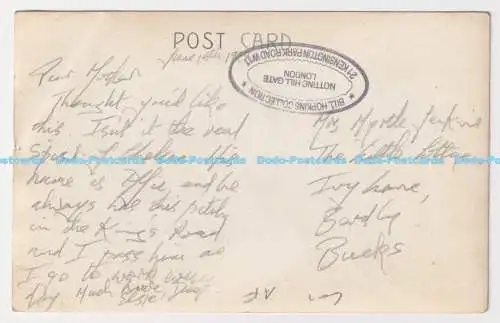 POST CARD
June 10th, 19
Dear Mother
Thought you'd like
this Isn't it the dead
name is Alfie and he
always has his pitch
in the Kings Road
and I pass him as
I go to work every
Day. Much love
Elsie, Doug
BILL HOPKINS COLLECTION
NOTTING HILL GATE
LONDON
21 KENSINGTON PARK ROAD W11
Mrs Myrtle Jenkins
The Little Cottage
Ivy Lane,
Bucks
Dodo-Postcards Dodo-Postcards Dodo-Postcards Dodo-Postcards Dodo-Postcards